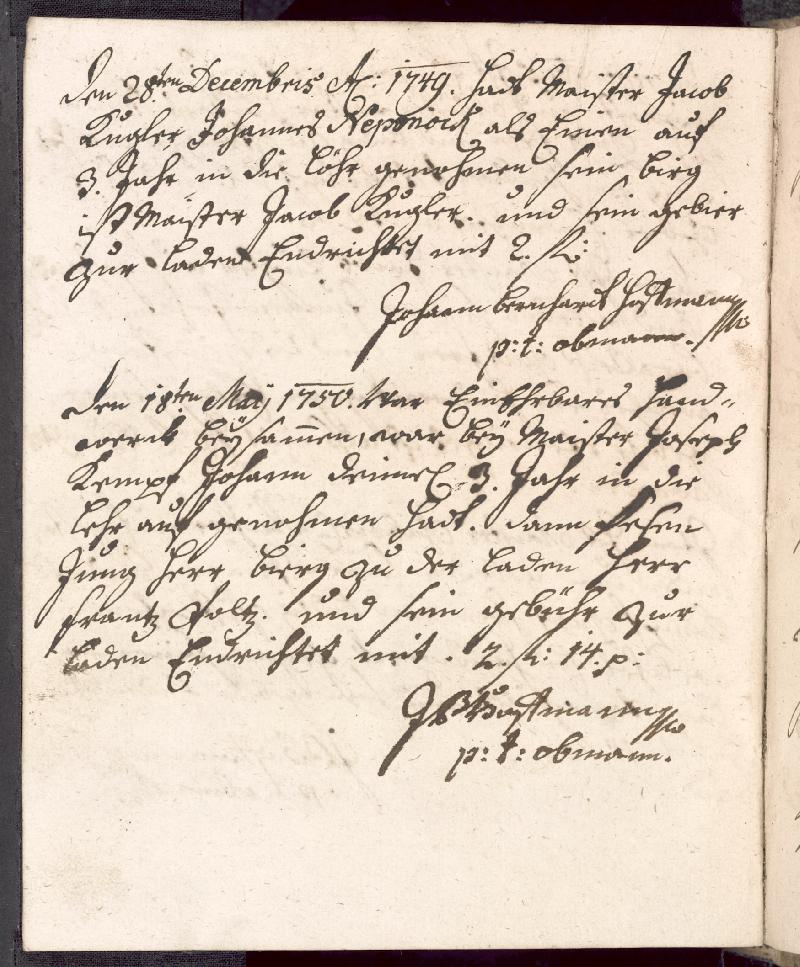 den 28ten Decembris Ao: 1749. hadt Maister Jacob
Kugler Johannes Neponoick als Einen auf
3. Jahr in die löhr genohmen sein birg
ist Maister Jacob Kugler. und sein gebier
zur laden Endrichtet mit 2. fl:
Johann bernhardt Hoffmann
p: t: obmann.
den 18ten Maÿ 1750. War Ein Ehrbares Hand-
werck beÿsamen, war beÿ Maister Joseph
Kempf Johann 3. Jahr in die
lehr auf genohmen hadt. dann
Jung Herr bierg zu der laden Herr
frantz Foltz. und sein gebühr zur
laden Endrichtet mit. 2. fl: 14. p:
JB Hoffmann
p: t: obmann.